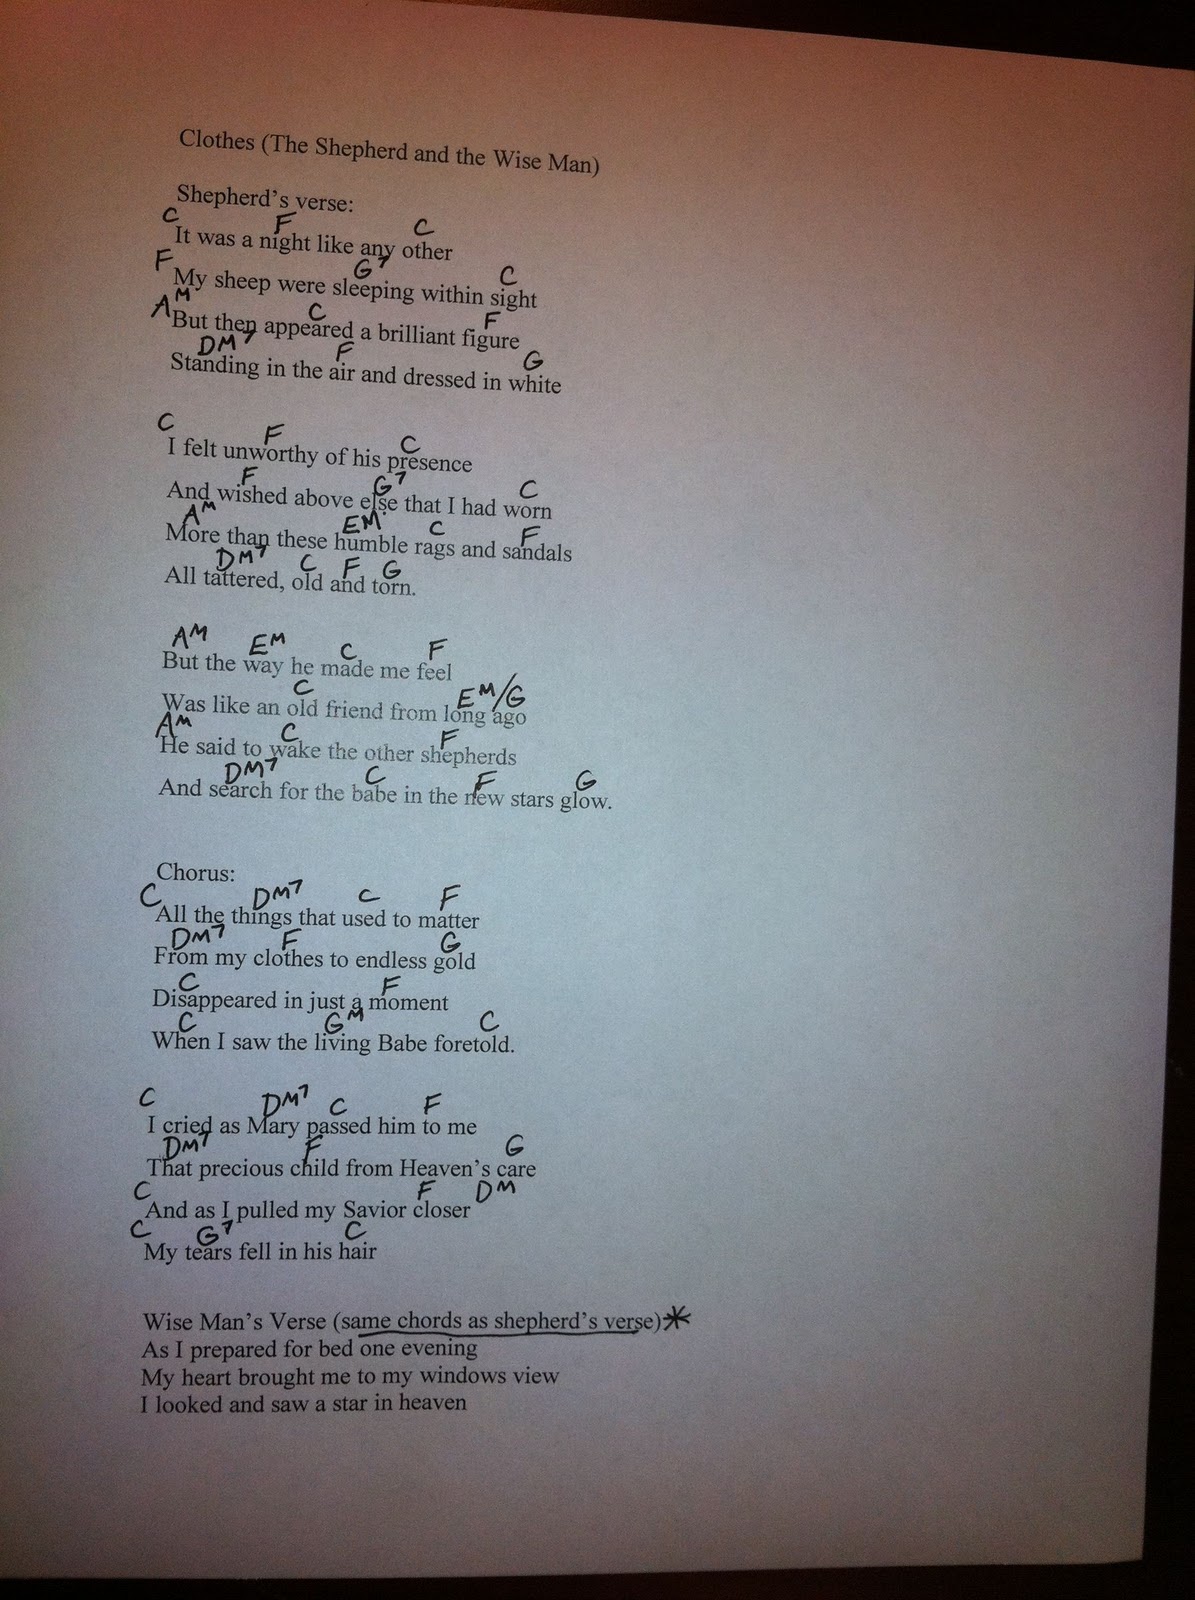 Clothes (The Shepherd and the Wise Man)
Shepherd's verse:
C F C
It was a night like any other
F G7 C
My sheep were sleeping within sight
AM C F
But then appeared a brilliant figure
DM7 F G
Standing in the air and dressed in white
C F C
I felt unworthy of his presence
F G7 C
And wished above else that I had worn
AM EM C F
More than these humble rags and sandals
DM7 C F G
All tattered, old and torn.
AM EM C F
But the way he made me feel
C EM/G
Was like an old friend from long ago
AM C F
He said to wake the other shepherds
DM7 C F G
And search for the babe in the new stars glow.
Chorus:
C DM7 C F
All the things that used to matter
DM7 F G
From my clothes to endless gold
C F
Disappeared in just a moment
C GM C
When I saw the living Babe foretold.
C DM7 C F
I cried as Mary passed him to me
DM7 F G
That precious child from Heaven's care
C F DM
And as I pulled my Savior closer
C G7 C
My tears fell in his hair
Wise Man's Verse (same chords as shepherd's verse)*
As I prepared for bed one evening
My heart brought me to my windows view
I looked and saw a star in heaven